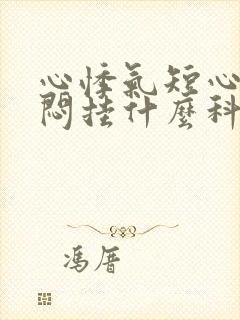 心悸氣短心
悶挂什麼科
馮厝